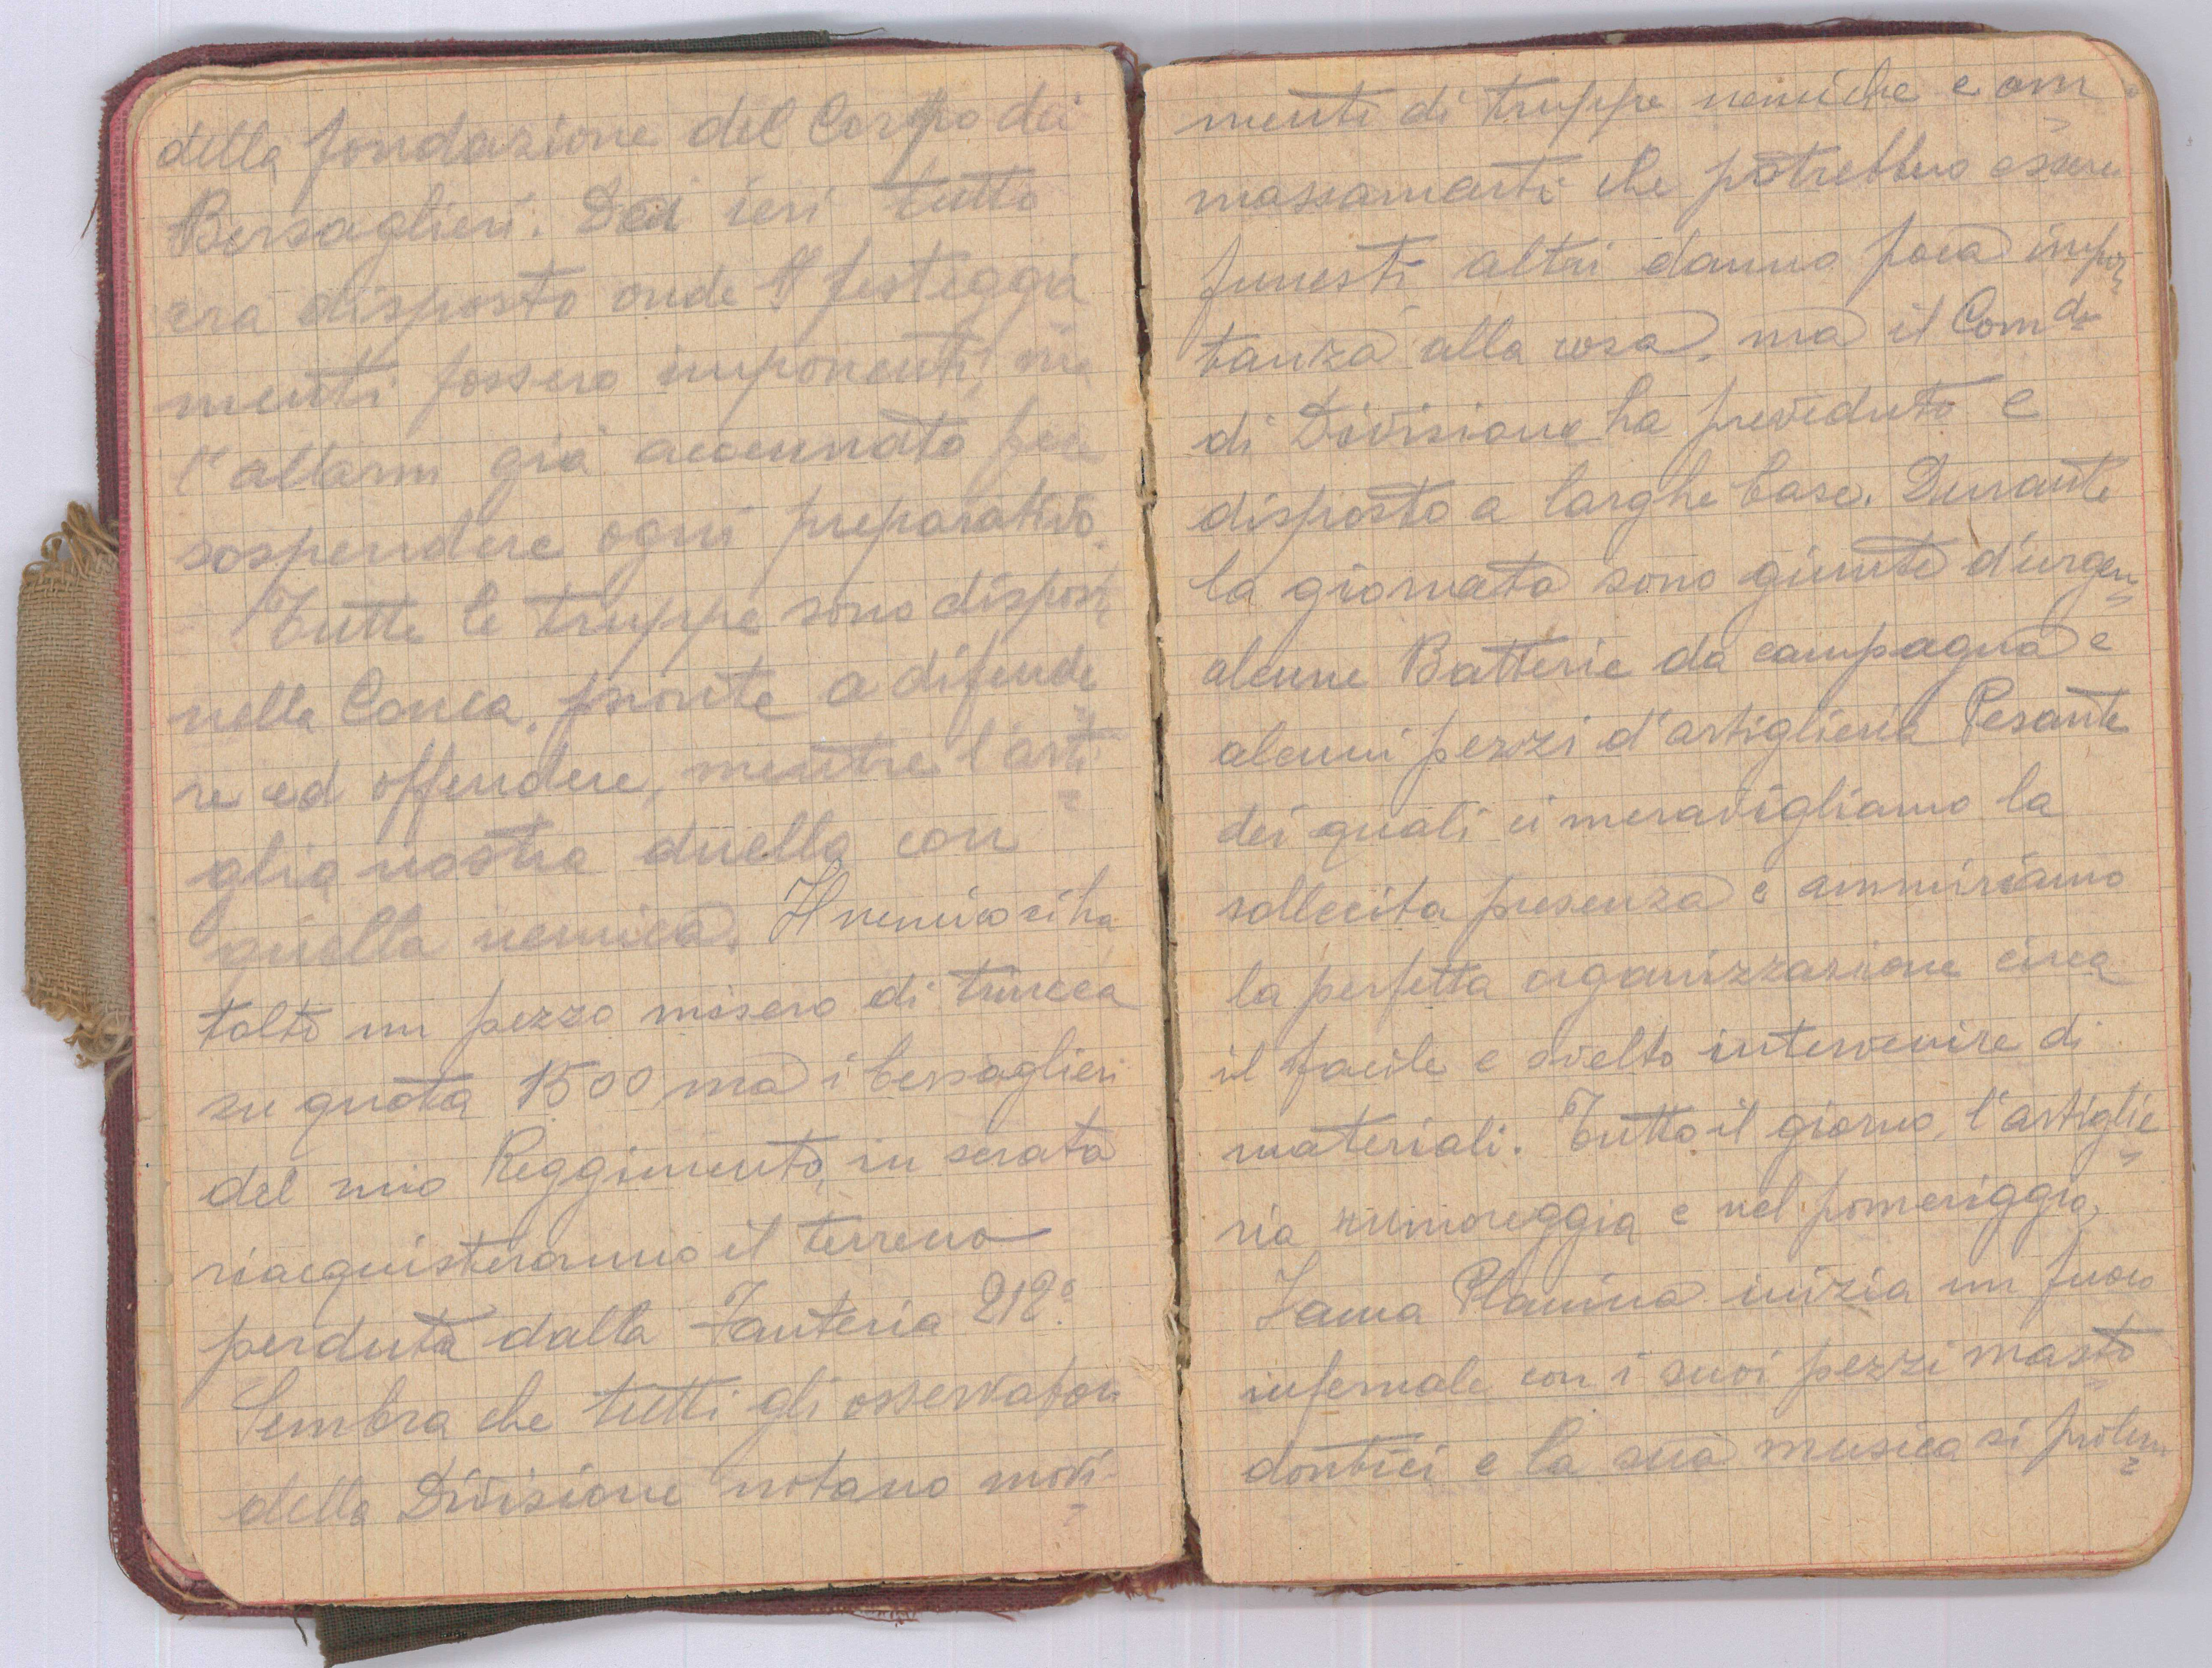 della fondazione del Corpo dei
Bersaglieri. Da ieri tutto
era disposto onde i festeggia
menti fossero imponenti, ma
l'allarm già accennato fece
sospendere ogni preparativo.
Tutte le truppe sono disposte
nella Conca, pronte a difende
re ed offendere, mentre l'arti
glia nostra duella con
quella nemica. Il nemico ci ha
tolto un pezzo misero di trincea
su quota 1500 ma i bersaglieri
del mio Reggimento, in serata
riacquisteranno il terreno
perduta dalla Fanteria 212º.
Sembra che tutti gli osservatori
della Divisione notano movi-
menti di truppe nemiche e am
massamenti che potrebbero essere
funesti altri danno poca impor
tanza alla cosa, ma il Comdo
di Divisione ha preveduto e
disposto a larghe base. Durante
la giornata sono giunte d'urgen
alcune Batterie da campagna e
alcuni pezzi d'artiglieria Pesante
dei quali ci meravigliamo la
sollecita presenza e ammiriamo
la perfetta organizzazione circa
il facile e svelto intervenire di
materiali. Tutto il giorno, l'artiglie
ria rumoreggia e nel pomeriggio,
Iama Planina inizia un fuoco
infernale con i suoi pezzi masto
dontici e la sua musica si prolun